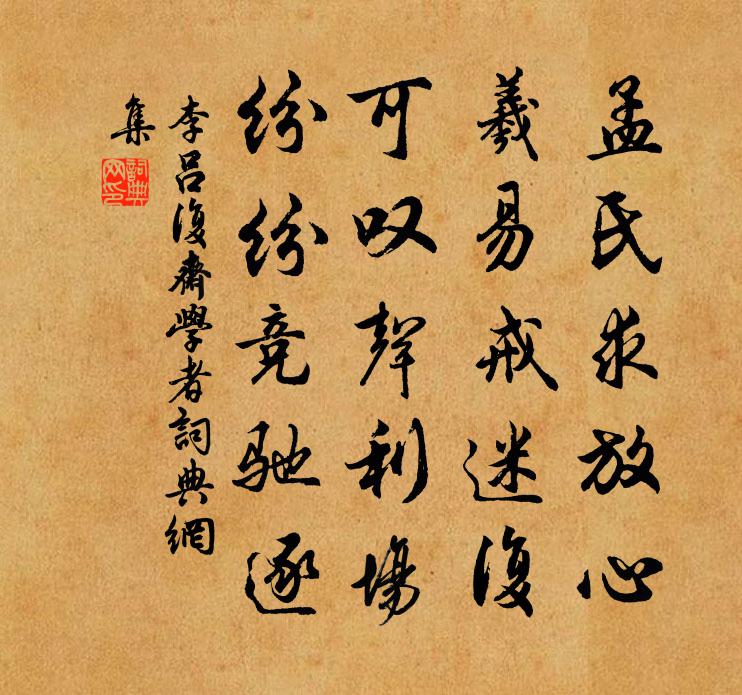 孟氏求放心
羲易戒迷復
可叹聲利場
紛紛竞馳逐
李吕復齋學者詞典網
集
詞典
网印